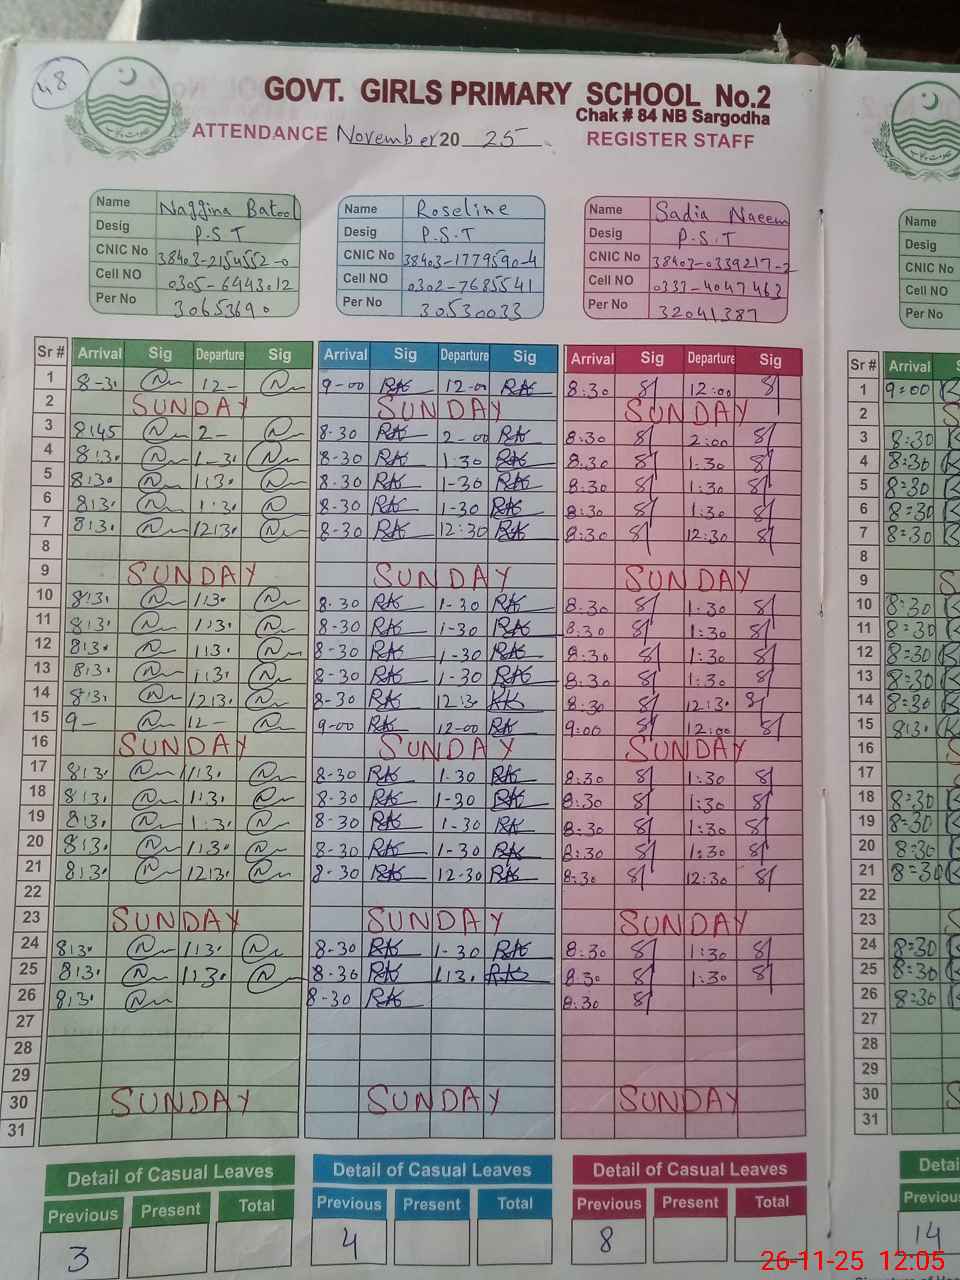 48
GOVT. GIRLS PRIMARY SCHOOL No.2
Chak # 84 NB Sargodha
ATTENDANCE November 2025 REGISTER STAFF
Name Naggina Batool
Desig P.S.T
CNIC No 38403-2154552-0
Cell NO 0305-6443012
Per No 30653690
Name Roseline
Desig P.S.T
CNIC No 38403-1779590-4
Cell NO 0302-7685541
Per No 30530033
Name Sadia Naeem
Desig P.S.T
CNIC No 38403-0339217-2
Cell NO 0337-4047463
Per No 32041387
Name
Desig
CNIC No
Cell NO
Per No
Sr # Arrival Sig Departure Sig Arrival Sig Departure Sig Arrival Sig Departure Sig Sr # Arrival
1 8-3. 12- 9-00 RK 12-00 RK 8:30 12:00 1 9:00
2 SUNDAY SUNDAY SUNDAY 2
3 8:45 2- 8-30 RK 2-00 RK 8:30 2:00 3 8:30
4 8:3. 1-3. 8-30 RK 1:30 RK 8:30 1:30 4 8:30
5 8:3. 1:3. 8-30 RK 1-30 RK 8:30 1:30 5 8:30
6 8:3. 1:3. 8-30 RK 1-30 RK 8:30 1:30 6 8:30
7 8:3. 12:3. 8-30 RK 12:30 RK 8:30 12:30 7 8:30
8 8
9 SUNDAY SUNDAY SUNDAY 9
10 8:3. 1:3. 8-30 RK 1-30 RK 8:30 1:30 10 8:30
11 8:3. 1:3. 8-30 RK 1-30 RK 8:30 1:30 11 8:30
12 8:3. 1:3. 8-30 RK 1-30 RK 8:30 1:30 12 8:30
13 8:3. 1:3. 8-30 RK 1-30 RK 8:30 1:30 13 8:30
14 8:3. 12:3. 8-30 RK 12:3. RK 8:30 12:3. 14 8:30
15 9- 12- 9-00 RK 12-00 RK 9:00 12:00 15 8:3.
16 SUNDAY SUNDAY SUNDAY 16
17 8:3. 1:3. 8-30 RK 1-30 RK 8:30 1:30 17
18 8:3. 1:3. 8-30 RK 1-30 RK 8:30 1:30 18 8:30
19 8:3. 1:3. 8-30 RK 1-30 RK 8:30 1:30 19 8:30
20 8:3. 1:3. 8-30 RK 1-30 RK 8:30 1:30 20 8:30
21 8:3. 12:3. 8-30 RK 12-30 RK 8:30 12:30 21 8:30
22 22
23 SUNDAY SUNDAY SUNDAY 23
24 8:3. 1:3. 8-30 RK 1-30 RK 8:30 1:30 24 8:30
25 8:3. 1:3. 8-30 RK 1:3. RK 8:30 1:30 25 8:30
26 8:3. 8-30 RK 8:30 26 8:30
27 27
28 28
29 29
30 SUNDAY SUNDAY SUNDAY 30
31 31
Detail of Casual Leaves Detail of Casual Leaves Detail of Casual Leaves
Previous Present Total Previous Present Total Previous Present Total Previous
3 4 8 14
26-11-25 12:05